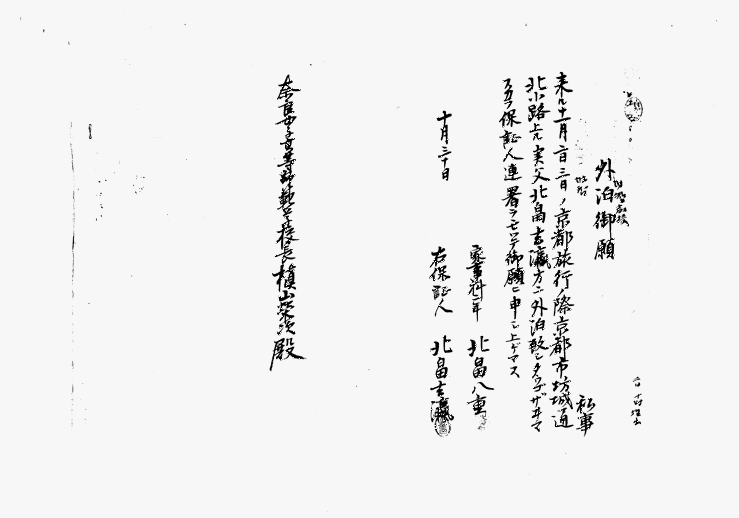 外泊御願
私事
来ル十一月二日三日ノ京都旅行ノ際京都市坊城通
北小路上ル実父北畠吉瀛方ニ外泊致シタウゴザヰマ
スカラ保証人連署ヲモッテ御願ヒ申シ上ゲマス
家事科一年 北畠八重
十月三十日
右保証人 北畠吉瀛
奈良女子高等師範学校長槙山栄次殿